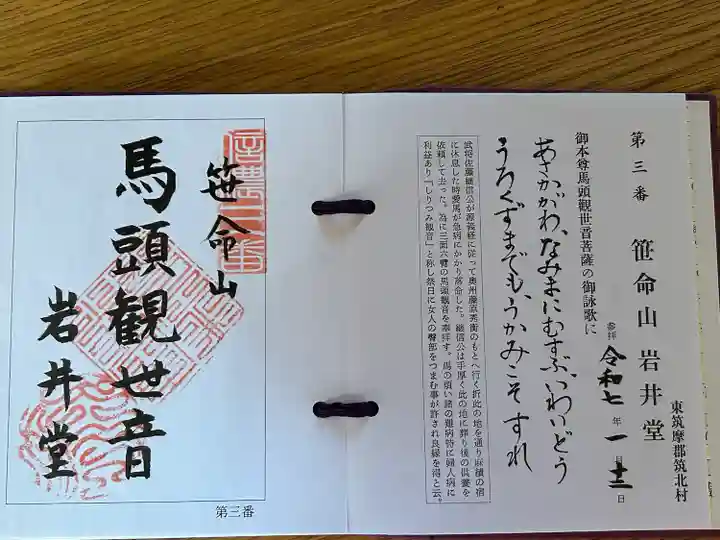 第三番　笹命山　岩井堂
東筑摩郡筑北村
御本尊馬頭観世音菩薩の御詠歌に
参拝　令和七年一月十二日
あさががわ、なみまにむすぶ、いわいどう
うろくずまでも、うかみこそすれ
武将佐藤継信公が源義経に従って奥州藤原秀衡のもとへ行く折此の地を通り麻績の宿
に休息した時愛馬が急病にかかり落命した。継信公は手厚く此の地に葬り後の供養を
依頼して去った。為に三面六臂の馬頭観音を奉拝す。馬の病い諸の難病特に婦人病に
利益あり「しりつみ観音」と称し祭日に女人の臀部をつまむ事が許され良縁を得と云。
信濃三番
笹命山
馬頭観世音
岩井堂
第三番